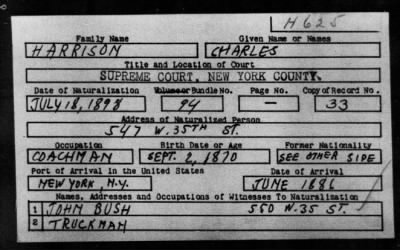 H625
Family Name Given Name or Names
HARRISON CHARLES
Title and Location of Court
SUPREME COURT, NEW YORK COUNTY.
Date of Naturalization Volume or Bundle No. Page No. Copy of Record No.
JULY 18, 1898 94 — 33
Address of Naturalized Person
547 W. 35TH ST.
Occupation Birth Date or Age Former Nationality
COACHMAN SEPT. 2, 1870 SEE OTHER SIDE
Port of Arrival in the United States Date of Arrival
NEW YORK, N.Y. JUNE 1886
Names, Addresses and Occupations of Witnesses To Naturalization
1 JOHN BUSH 550 W. 35 ST.
2 TRUCKMAN